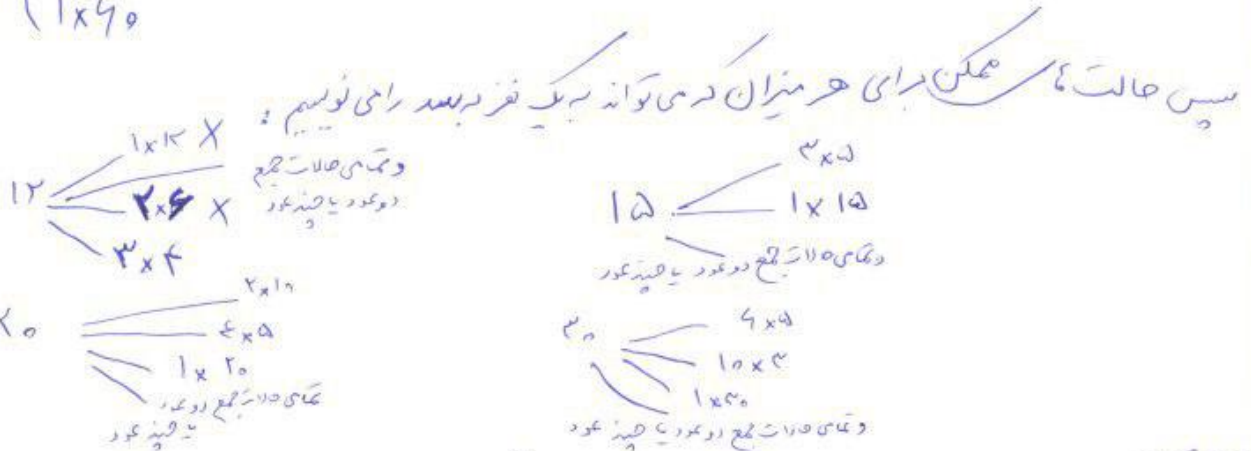 ۱×۶۰
سپس حالت های ممکن برای هر میزان که می تواند به یک نفر برسد را می نویسیم :
۱۲
۱×۱۲ X
۲×۶ X
۳×۴
و تمامی حالات جمع
دو عدد یا چند عدد
۱۵
۳×۵
۱×۱۵
و تمامی حالات جمع دو عدد یا چند عدد
۲۰
۲×۱۰
۴×۵
۱×۲۰
تمامی حالات جمع دو عدد
یا چند عدد
۳۰
۶×۵
۱۰×۳
۱×۳۰
و تمامی حالات جمع دو عدد یا چند عدد